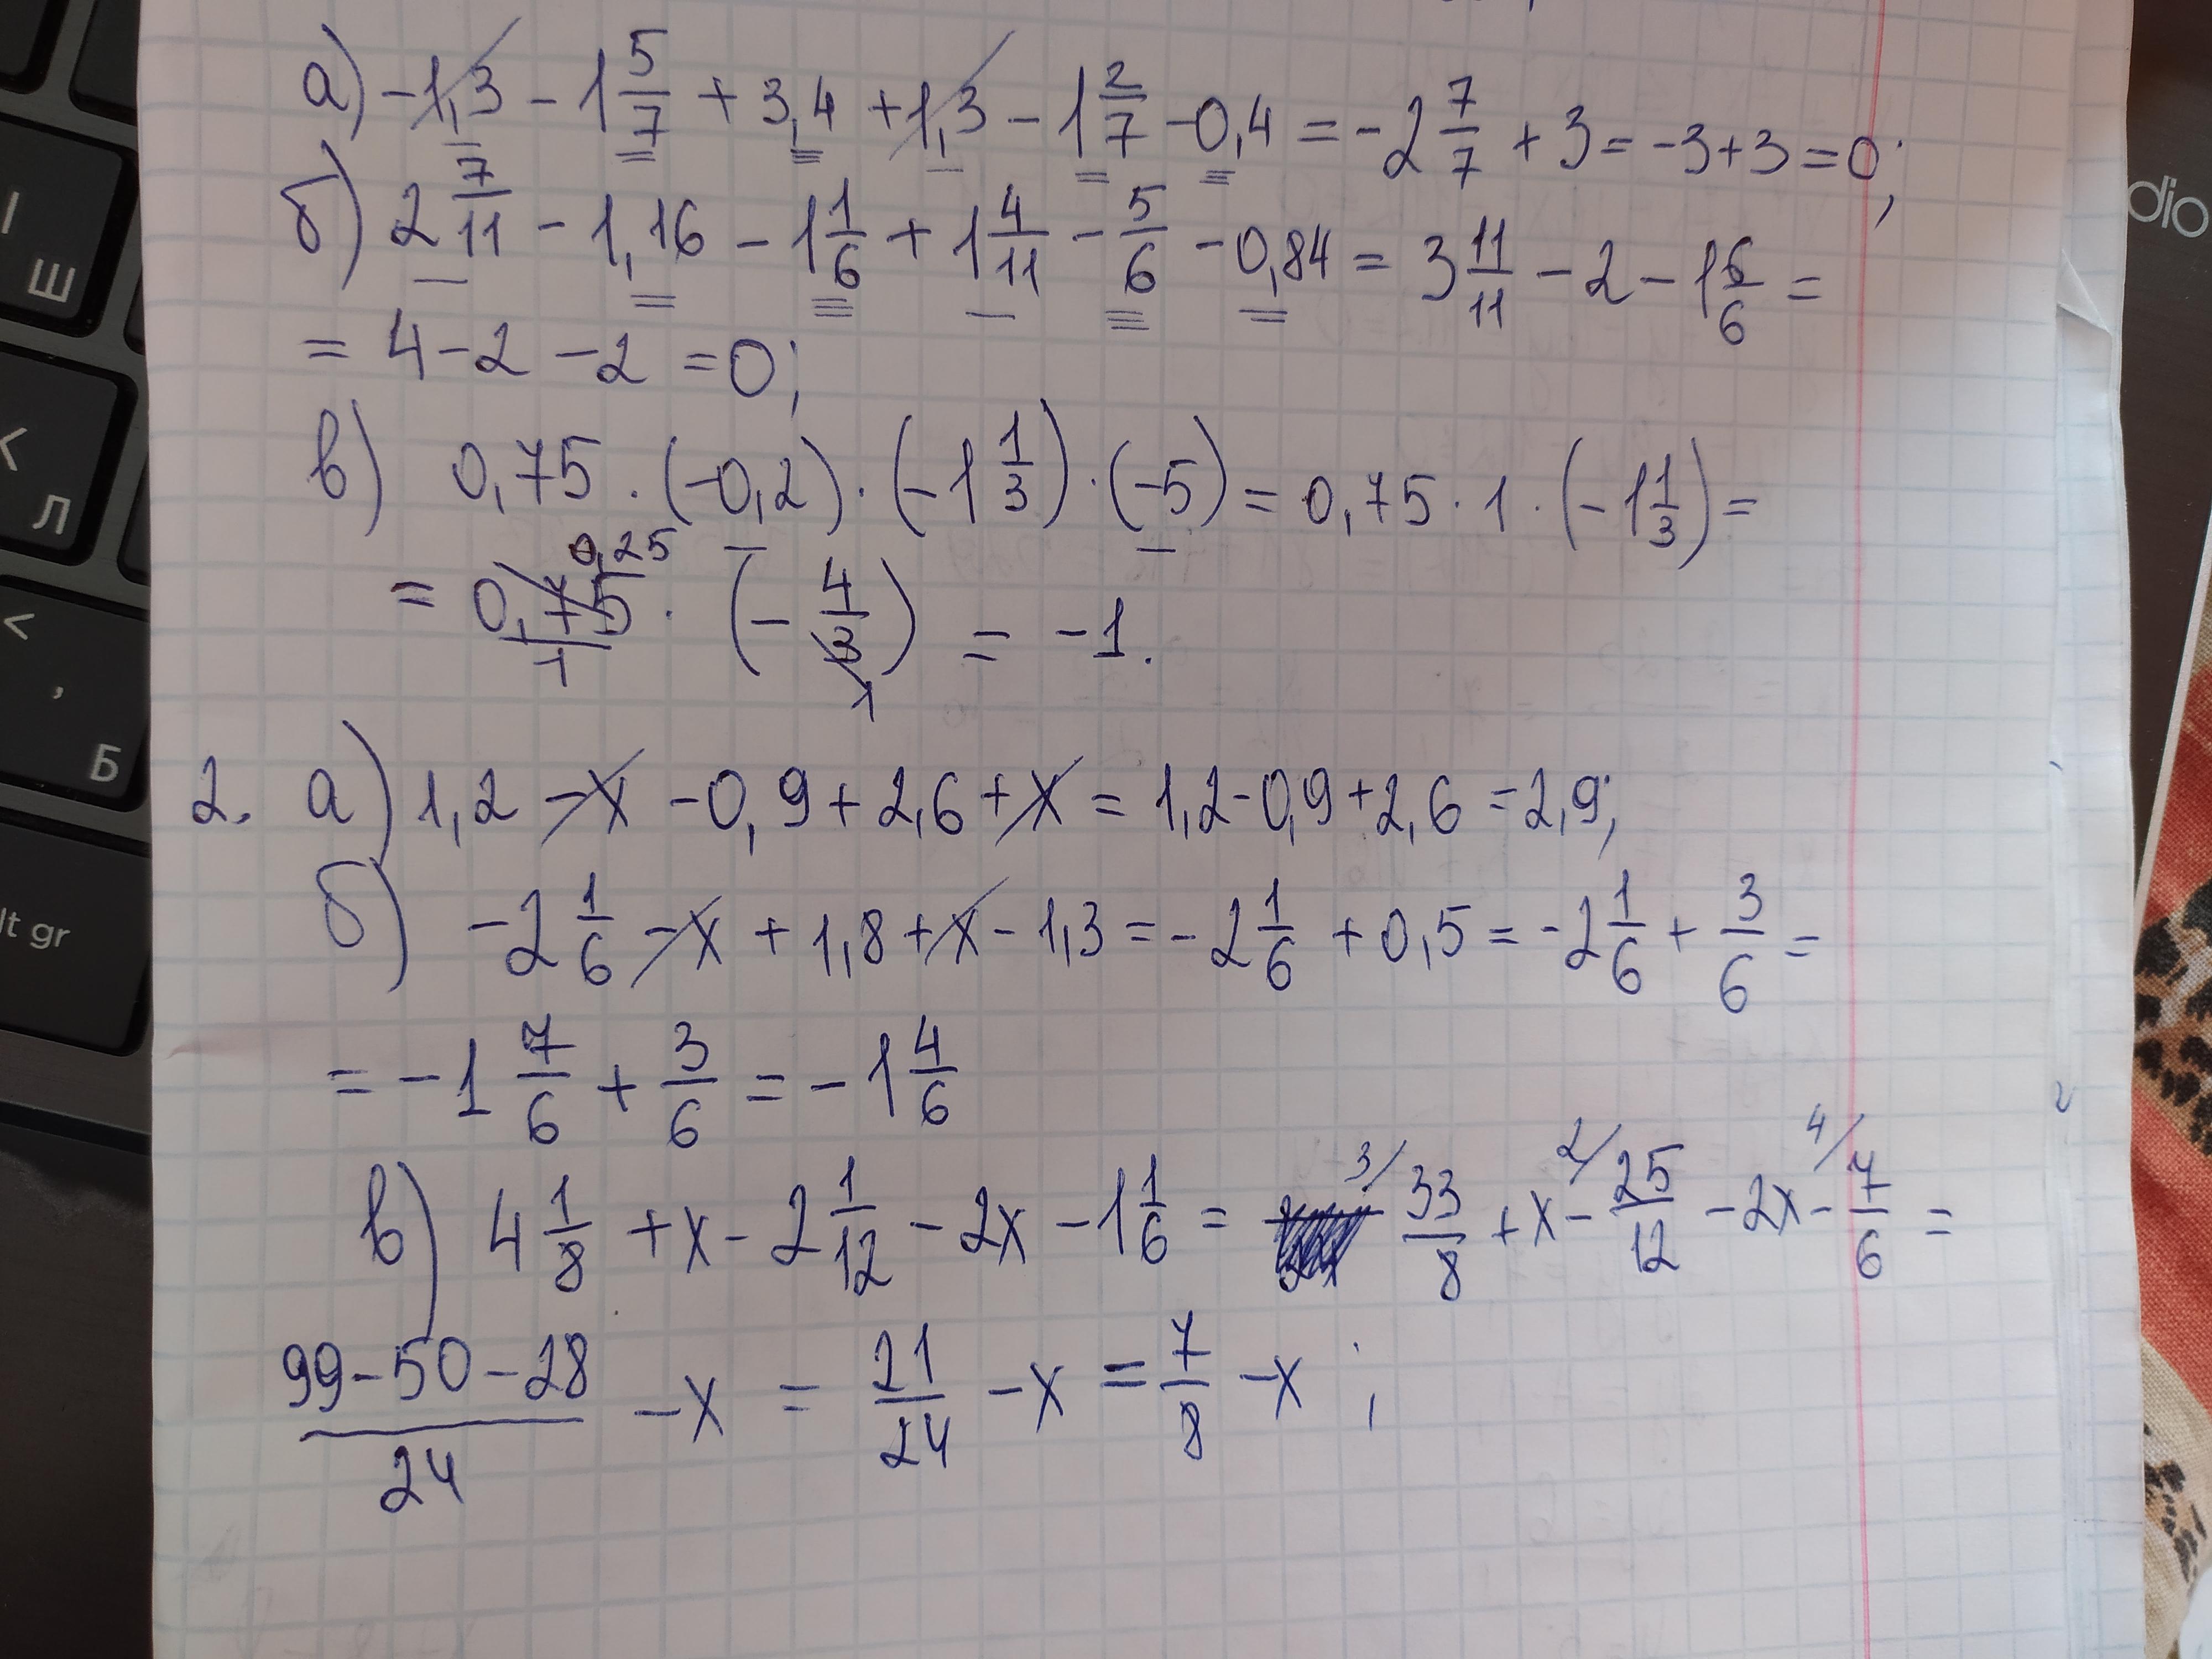 а) -1,3 - 1 5/7 + 3,4 + 1,3 - 1 2/7 - 0,4 = -2 7/7 + 3 = -3+3 = 0;
б) 2 7/11 - 1,16 - 1 1/6 + 1 4/11 - 5/6 - 0,84 = 3 11/11 - 2 - 1 6/6 =
= 4 - 2 - 2 = 0;
в) 0,75 · (-0,2) · (-1 1/3) · (-5) = 0,75 · 1 · (-1 1/3) =
0,25
= 0,75/1 · (-4/3) = -1.
1
2. а) 1,2 - x - 0,9 + 2,6 + x = 1,2 - 0,9 + 2,6 = 2,9;
б) -2 1/6 - x + 1,8 + x - 1,3 = -2 1/6 + 0,5 = -2 1/6 + 3/6 =
= -1 7/6 + 3/6 = -1 4/6
3/ 2/ 4/
в) 4 1/8 + x - 2 1/12 - 2x - 1 1/6 = 33/8 + x - 25/12 - 2x - 7/6 =
99-50-28/24 - x = 21/24 - x = 7/8 - x ;
dio
Ш
<
Л
<
,
Б
lt gr